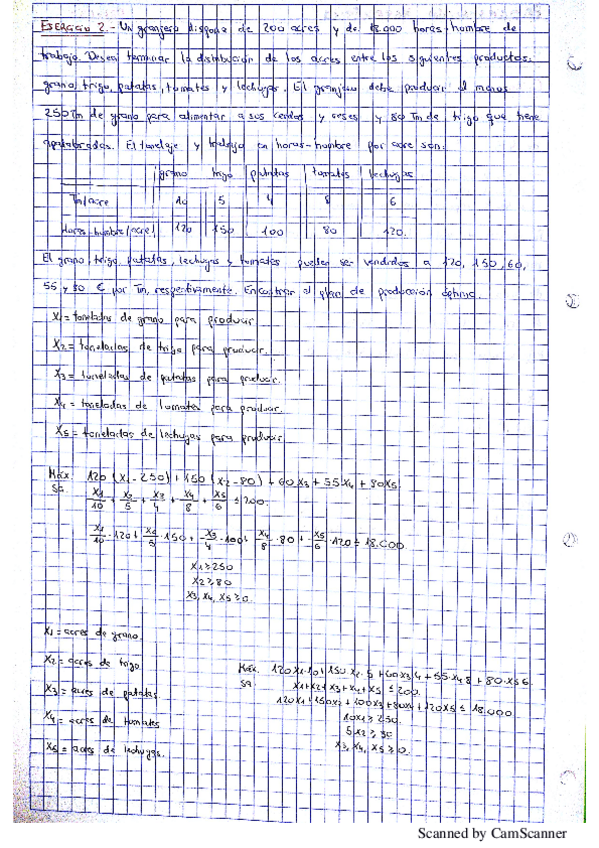 EJERCICIO 2.- Un granjero dispone de 200 acres y de 18.000 horas-hombre de
trabajo. Desea terminar la distribución de los acres entre los siguientes productos:
grano, trigo, patatas, tomates y lechugas. El granjero debe producir al menos
250 Tm de grano para alimentar a sus cerdos y reses y 80 Tm de trigo que tiene
apalabradas. El tonelaje y trabajo en horas-hombre por acre son:
grano trigo patatas tomates lechugas
Tm/acre 10 5 4 8 6
Horas-hombre/acre 120 150 100 80 120.
El grano, trigo, patatas, lechugas y tomates pueden ser vendidos a 120, 150, 60,
55 y 80 € por Tm, respectivamente. Encontrar el plan de producción óptima.
X1 = toneladas de grano para producir
X2 = toneladas de trigo para producir.
X3 = toneladas de patatas para producir.
X4 = toneladas de tomates para producir.
X5 = toneladas de lechugas para producir
Máx. 120 (X1-250) + 150 (X2-80) + 60X3 + 55X4 + 80X5
sa. X1/10 + X2/5 + X3/4 + X4/8 + X5/6 ≤ 200.
X1/10 · 120 + X2/5 · 150 + X3/4 · 100 + X4/8 · 80 + X5/6 · 120 ≤ 18.000
X1 ≥ 250
X2 ≥ 80
X3, X4, X5 ≥ 0.
X1 = acres de grano.
X2 = acres de trigo
X3 = acres de patatas
X4 = acres de tomates
X5 = acres de lechugas.
Máx. 120X1·10 + 150 X2·5 + 60X3·4 + 55·X4·8 + 80·X5·6
sa. X1+X2+X3+X4+X5 ≤ 200.
120X1 + 150X2 + 100X3 + 80X4 + 120X5 ≤ 18.000
10X1 ≥ 250.
5X2 ≥
X3, X4, X5 ≥ 0.
Scanned by CamScanner